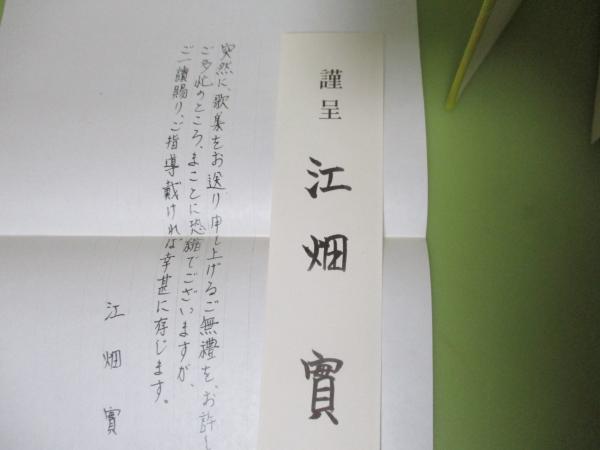 謹呈
江畑 實
突然に、歌集をお送り申し上げるご無禮を、お許し
ご多忙のところ、まことに恐縮でございますが、
ご一讀賜り、ご指導戴ければ幸甚に存じます。
江畑 實